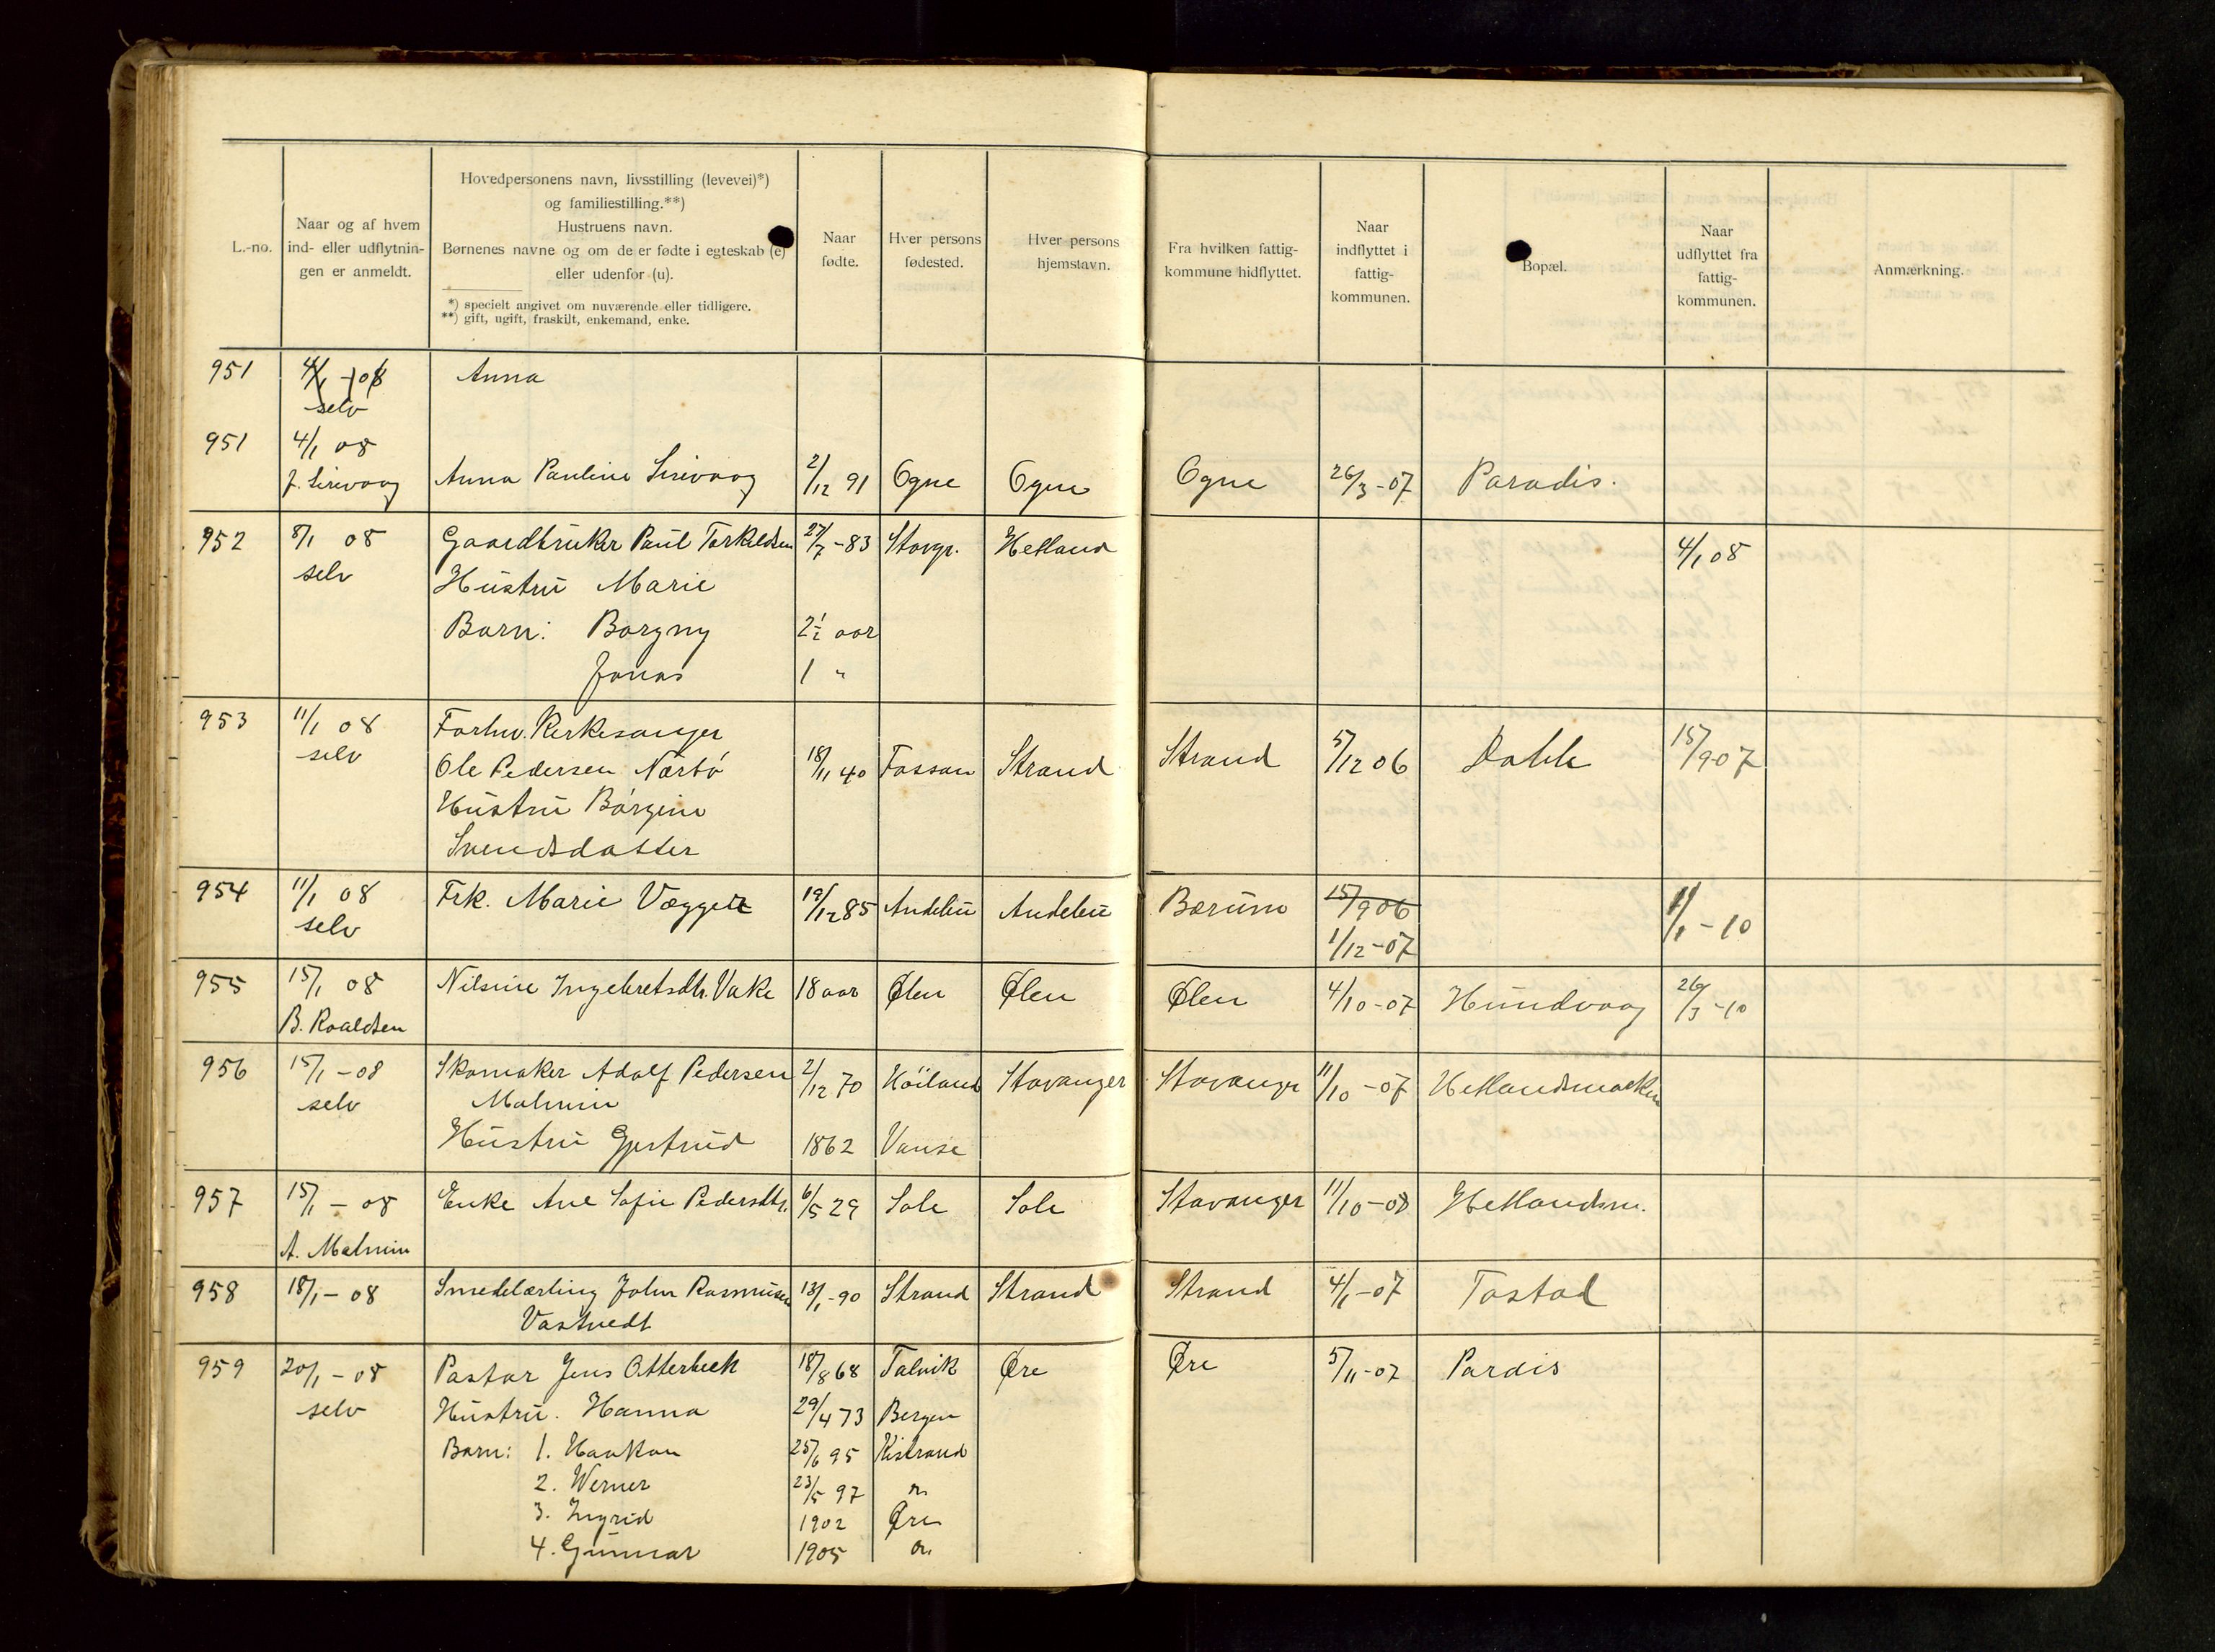 L.-no.
Naar og af hvem
ind- eller udflytnin-
gen er anmeldt.
Hovedpersonens navn, livsstilling (levevei)*)
og familiestilling.**)
Hustruens navn.
Børnenes navne og om de er fødte i egteskab (e)
eller udenfor (u).
*) specielt angivet om nuværende eller tidligere.
**) gift, ugift, fraskilt, enkemand, enke.
Naar
fødte.
Hver persons
fødested.
Hver persons
hjemstavn.
Fra hvilken fattig-
kommune hidflyttet.
Naar
indflyttet i
fattig-
kommunen.
Bopæl.
Naar
udflyttet fra
fattig-
kommunen.
Anmærkning.
951 4/1 - 08 Anna
selv
951 4/1 08
J. Sirivaag Anna Pauline Sirivaag 2/12 91 Ogne Ogne Ogne 26/3 - 07 Paradis.
952 8/1 08 Gaardbruker Paul Torkildsen 27/7 - 83 Stavgr. Hetland 4/1 08
selv Hustru Marie
Barn: Borgny 2½ aar
Jonas 1 "
953 11/1 08 Forhv. Kirkesanger
selv Ole Pedersen Nærbö 18/11 40 Fossan Strand Strand 5/12 06 Dahle 15/9 07
Hustru Börgine
Svendsdatter
954 11/1 08 Frk. Marie Vægger 19/12 85 Andebu Andebu Bærum 15/9 06 1/1 - 10
selv 1/12 - 07
955 15/1 08 Nilsine Ingebretsdtr. Vake 18 aar Ølen Ølen Ølen 4/10 - 07 Hundvaag 26/3 - 10
B. Roaldsen
956 15/1 - 08 Skomaker Adolf Pedersen 2/12 70 Höiland Stavanger Stavanger 11/10 - 07 Hetlandsmarken
selv Malmin
Hustru Gjertrud 1862 Vanse
957 15/1 - 08 Enke Ane Sofie Pedersdtr. 6/5 29 Sole Sole Stavanger 11/10 - 08 Hetlandsm.
A. Malmin
958 18/1 - 08 Smedelærling John Rasmusen 13/1 - 90 Strand Strand Strand 4/1 - 07 Tastad
Vastvedt
959 20/1 - 08 Pastor Jens Otterbech 18/8 68 Talvik Øre Øre 5/11 - 07 Pardis
selv Hustru. Hanna 29/4 73 Bergen
Barn: 1. Haakon 25/6 95 Kistrand
2. Werner 23/5 97 "
3. Ingrid 1902 Øre
4. Gunnar 1905 "